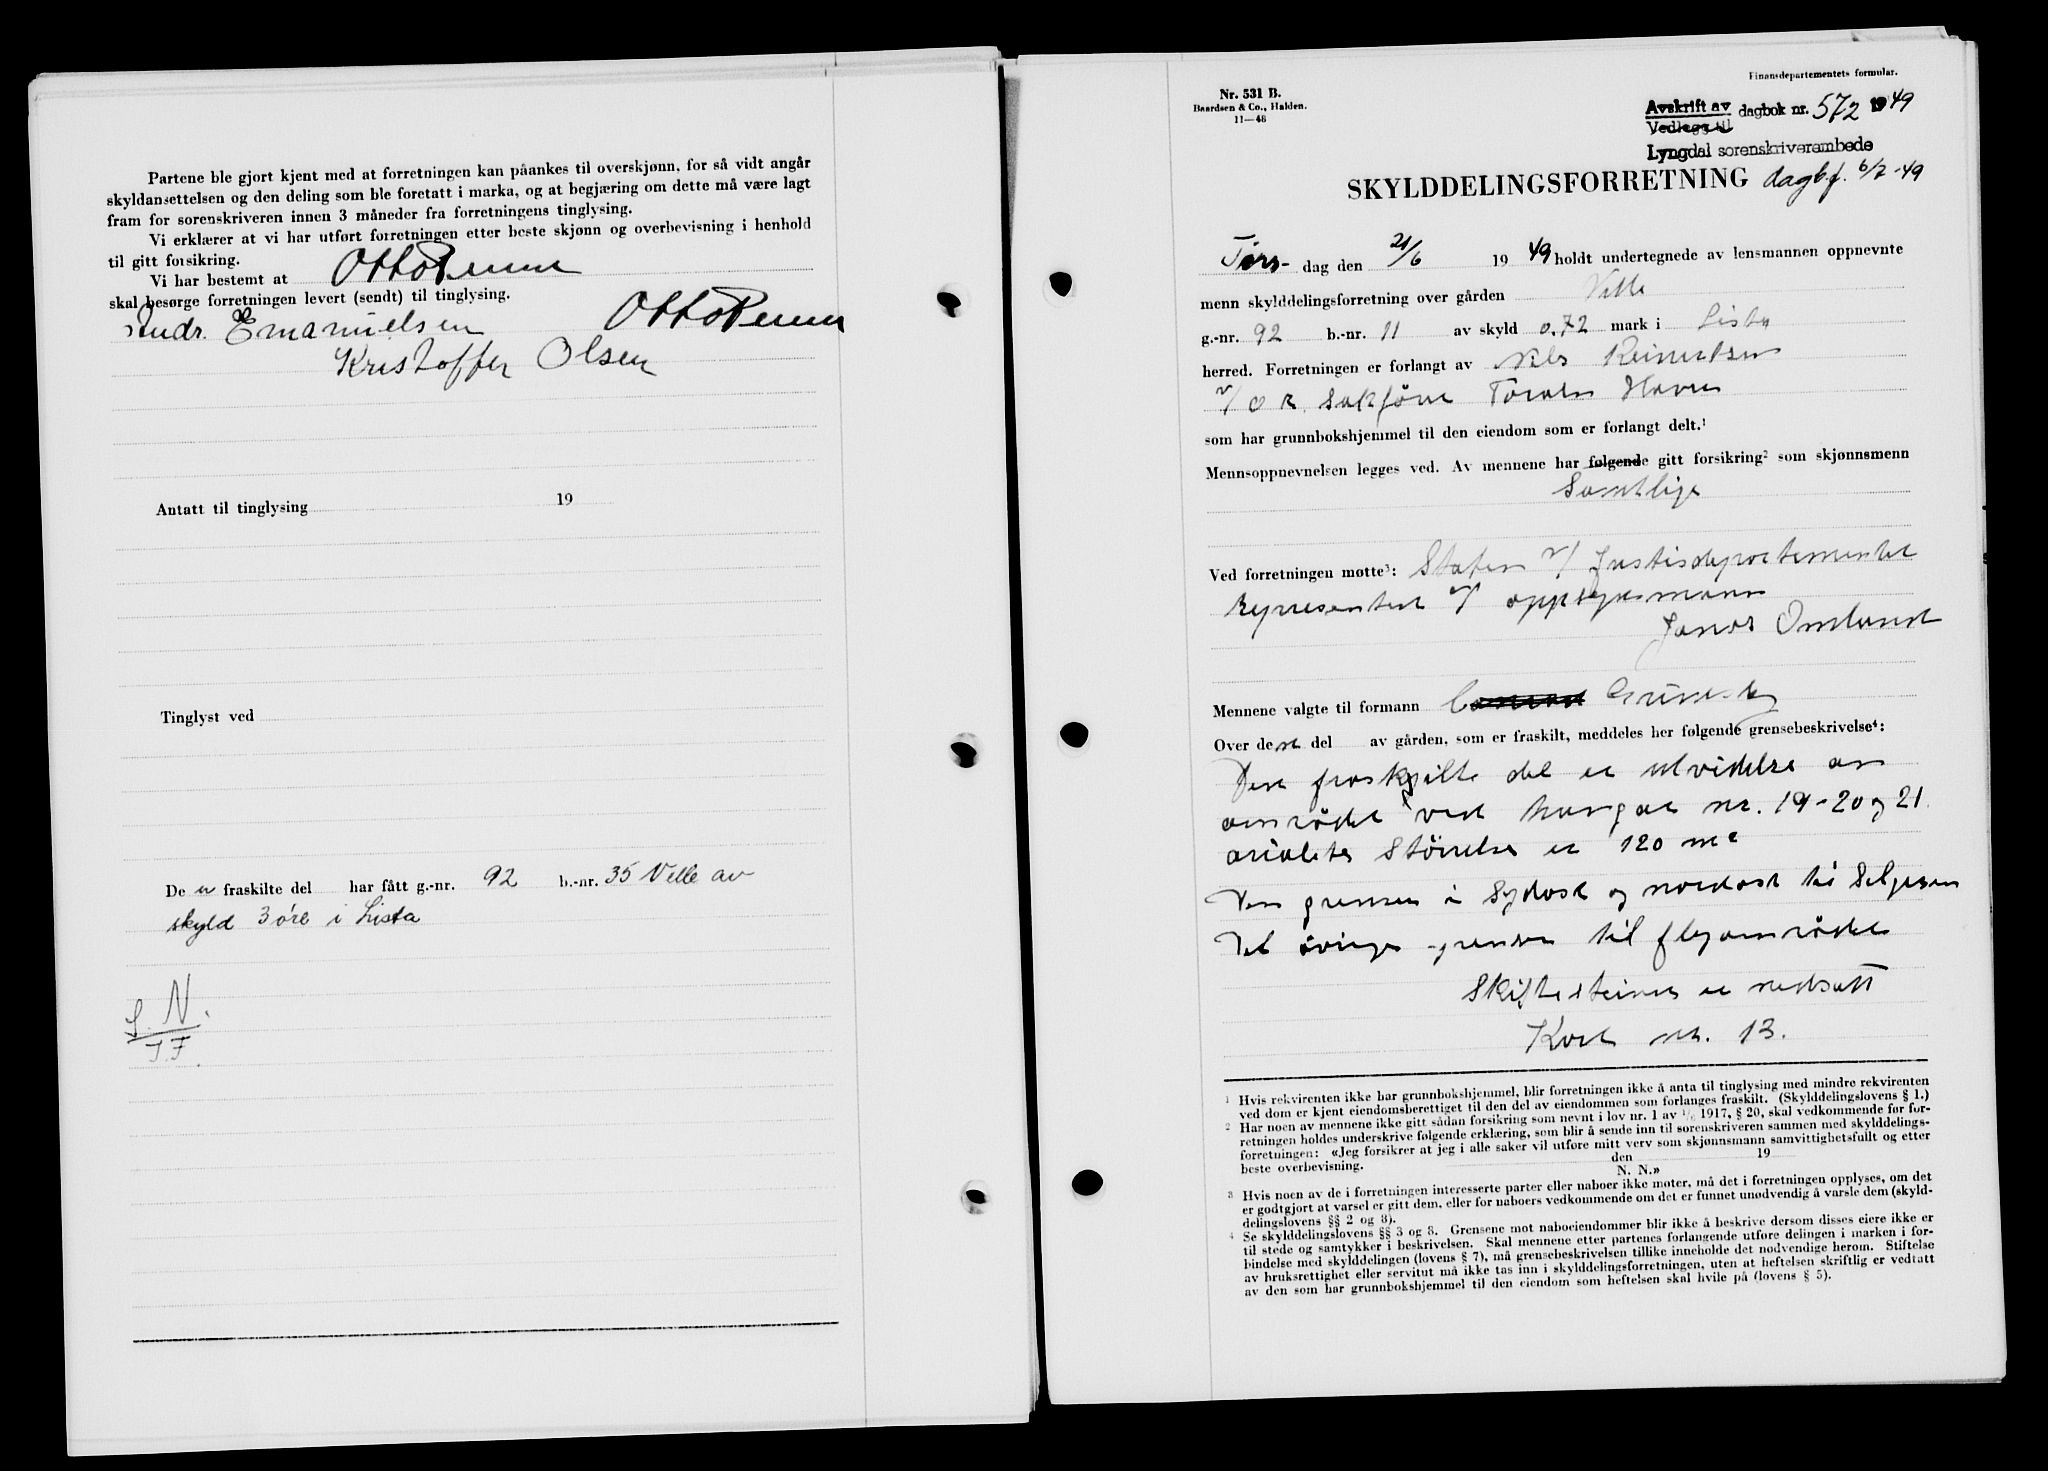 Partene ble gjort kjent med at forretningen kan påankes til overskjønn, for så vidt angår
skyldansettelsen og den deling som ble foretatt i marka, og at begjæring om dette må være lagt
fram for sorenskriveren innen 3 måneder fra forretningens tinglysing.
Vi erklærer at vi har utført forretningen etter beste skjønn og overbevisning i henhold
til gitt forsikring.
Vi har bestemt at Otto
skal besørge forretningen levert (sendt) til tinglysing.
Andr. Emanuelsen Otto
Kristoffer Olsen
Antatt til tinglysing 19
Tinglyst ved
De n fraskilte del har fått g.-nr. 92 b.-nr. 35 Velle av
skyld 3 øre i Lista
S. N.
T F.
Finansdepartementets formular.
Nr. 531 B.
Baardsen & Co., Halden.
11—48
Avskrift av dagbok nr. 572 1949
Vedlegg til
Lyngdal sorenskriverembede
SKYLDDELINGSFORRETNING dagbf. 6/7-49
Tirs- dag den 21/6 1949 holdt undertegnede av lensmannen oppnevnte
menn skylddelingsforretning over gården Velle
g.-nr. 92 b.-nr. 11 av skyld 0.72 mark i Lista
herred. Forretningen er forlangt av Nils Reinertsen
v/ O R. Sakfører Toralv Havn
som har grunnbokshjemmel til den eiendom som er forlangt delt.¹
Mennsoppnevnelsen legges ved. Av mennene har følgende gitt forsikring² som skjønnsmenn
Samtlige
Ved forretningen møtte³: Staten v/ Justisdepartementet
representert v/ oppsynsmann
Jonas Omland
Mennene valgte til formann
Over den del av gården, som er fraskilt, meddeles her følgende grensebeskrivelse⁴:
Den fraskilte del er utvidelse av
området ved hangar nr. 19-20 og 21.
arialets Størrelse er 120 m²
Den grenser i Sydost og nordost til Selgeren
Det øvrige grenser til flyområdet
Skiftesteiner er nedsatt
Kart nr. 13.
¹ Hvis rekvirenten ikke har grunnbokshjemmel, blir forretningen ikke å anta til tinglysing med mindre rekvirenten
ved dom er kjent eiendomsberettiget til den del av eiendommen som forlanges fraskilt. (Skylddelingslovens § 1.)
² Har noen av mennene ikke gitt sådan forsikring som nevnt i lov nr. 1 av 1/6 1917, § 20, skal vedkommende før for-
retningen holdes underskrive følgende erklæring, som blir å sende inn til sorenskriveren sammen med skylddelings-
forretningen: «Jeg forsikrer at jeg i alle saker vil utføre mitt verv som skjønnsmann samvittighetsfullt og etter
beste overbevisning. den 19
N. N.»
³ Hvis noen av de i forretningen interesserte parter eller naboer ikke møter, må det i forretningen opplyses, om det
er godtgjort at varsel er gitt dem, eller for naboers vedkommende om det er funnet unødvendig å varsle dem (skyld-
delingslovens §§ 2 og 3).
⁴ Se skylddelingslovens §§ 3 og 8. Grensene mot naboeiendommer blir ikke å beskrive dersom disses eiere ikke er
til stede og samtykker i beskrivelsen. Skal mennene etter partenes forlangende utføre delingen i marken i for-
bindelse med skylddelingen (lovens § 7), må grensebeskrivelsen tillike inneholde det nødvendige herom. Stiftelse
av bruksrettighet eller servitut må ikke tas inn i skylddelingsforretningen, uten at heftelsen skriftlig er vedtatt
av den som har grunnbokshjemmel til den eiendom som heftelsen skal hvile på (lovens § 5).